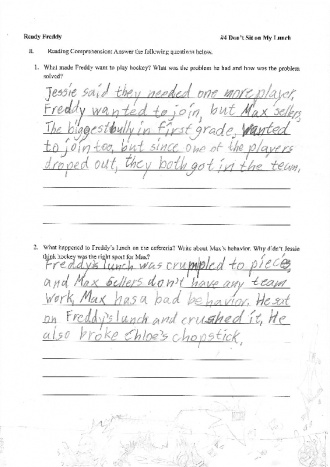 Ready Freddy
#4 Don't Sit on My Lunch
B. Reading Comprehension: Answer the following questions below.
1. What made Freddy want to play hockey? What was the problem he had and how was the problem
solved?
Jessie said they needed one more player.
Freddy wanted to join, but Max sellers,
The biggest bully in first grade, wanted
to join too, but since one of the players
droped out, they both got in the team.
2. What happened to Freddy's Lunch on the cafeteria? Write about Max's behavior. Why didn't Jessie
think hockey was the right sport for Max?
Freddy's lunch was crumpled to pieces,
and Max Sellers don't have any team
work, Max has a bad behavior. He sat
on Freddy's lunch and crushed it. He
also broke Chloe's chopstick.